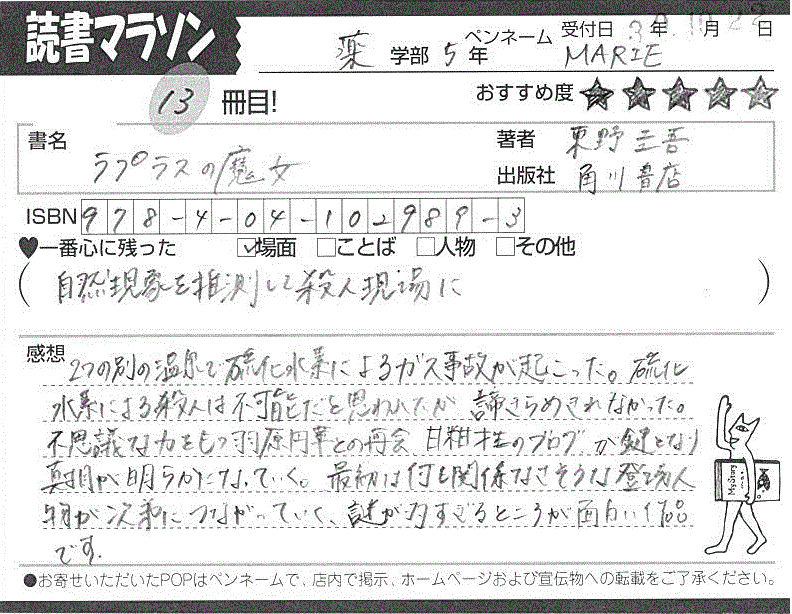 読書マラソン
薬 学部 5 年
ペンネーム MARIE
受付日 年 月 日
13 冊目!
おすすめ度 ★★★★★
書名 ラプラスの魔女
著者 東野圭吾
出版社 角川書店
ISBN 978-4-04-102989-3
♥一番心に残った ☑場面 □ことば □人物 □その他
(自然現象を推測して殺人現場に)
感想
2つの別の温泉で硫化水素によるガス事故が起こった。硫化
水素による殺人は不可能だと思われたが 諦きらめきれなかった。
不思議な力をもつ羽原円華との再会 甘粕才生のブログが鍵となり
真相が明らかになっていく。最初は何も関係なさそうな登場人
物が次第につながっていく、謎が すぎるところが面白い作品
です。
●お寄せいただいたPOPはペンネームで、店内で掲示、ホームページおよび宣伝物への転載をご了承ください。